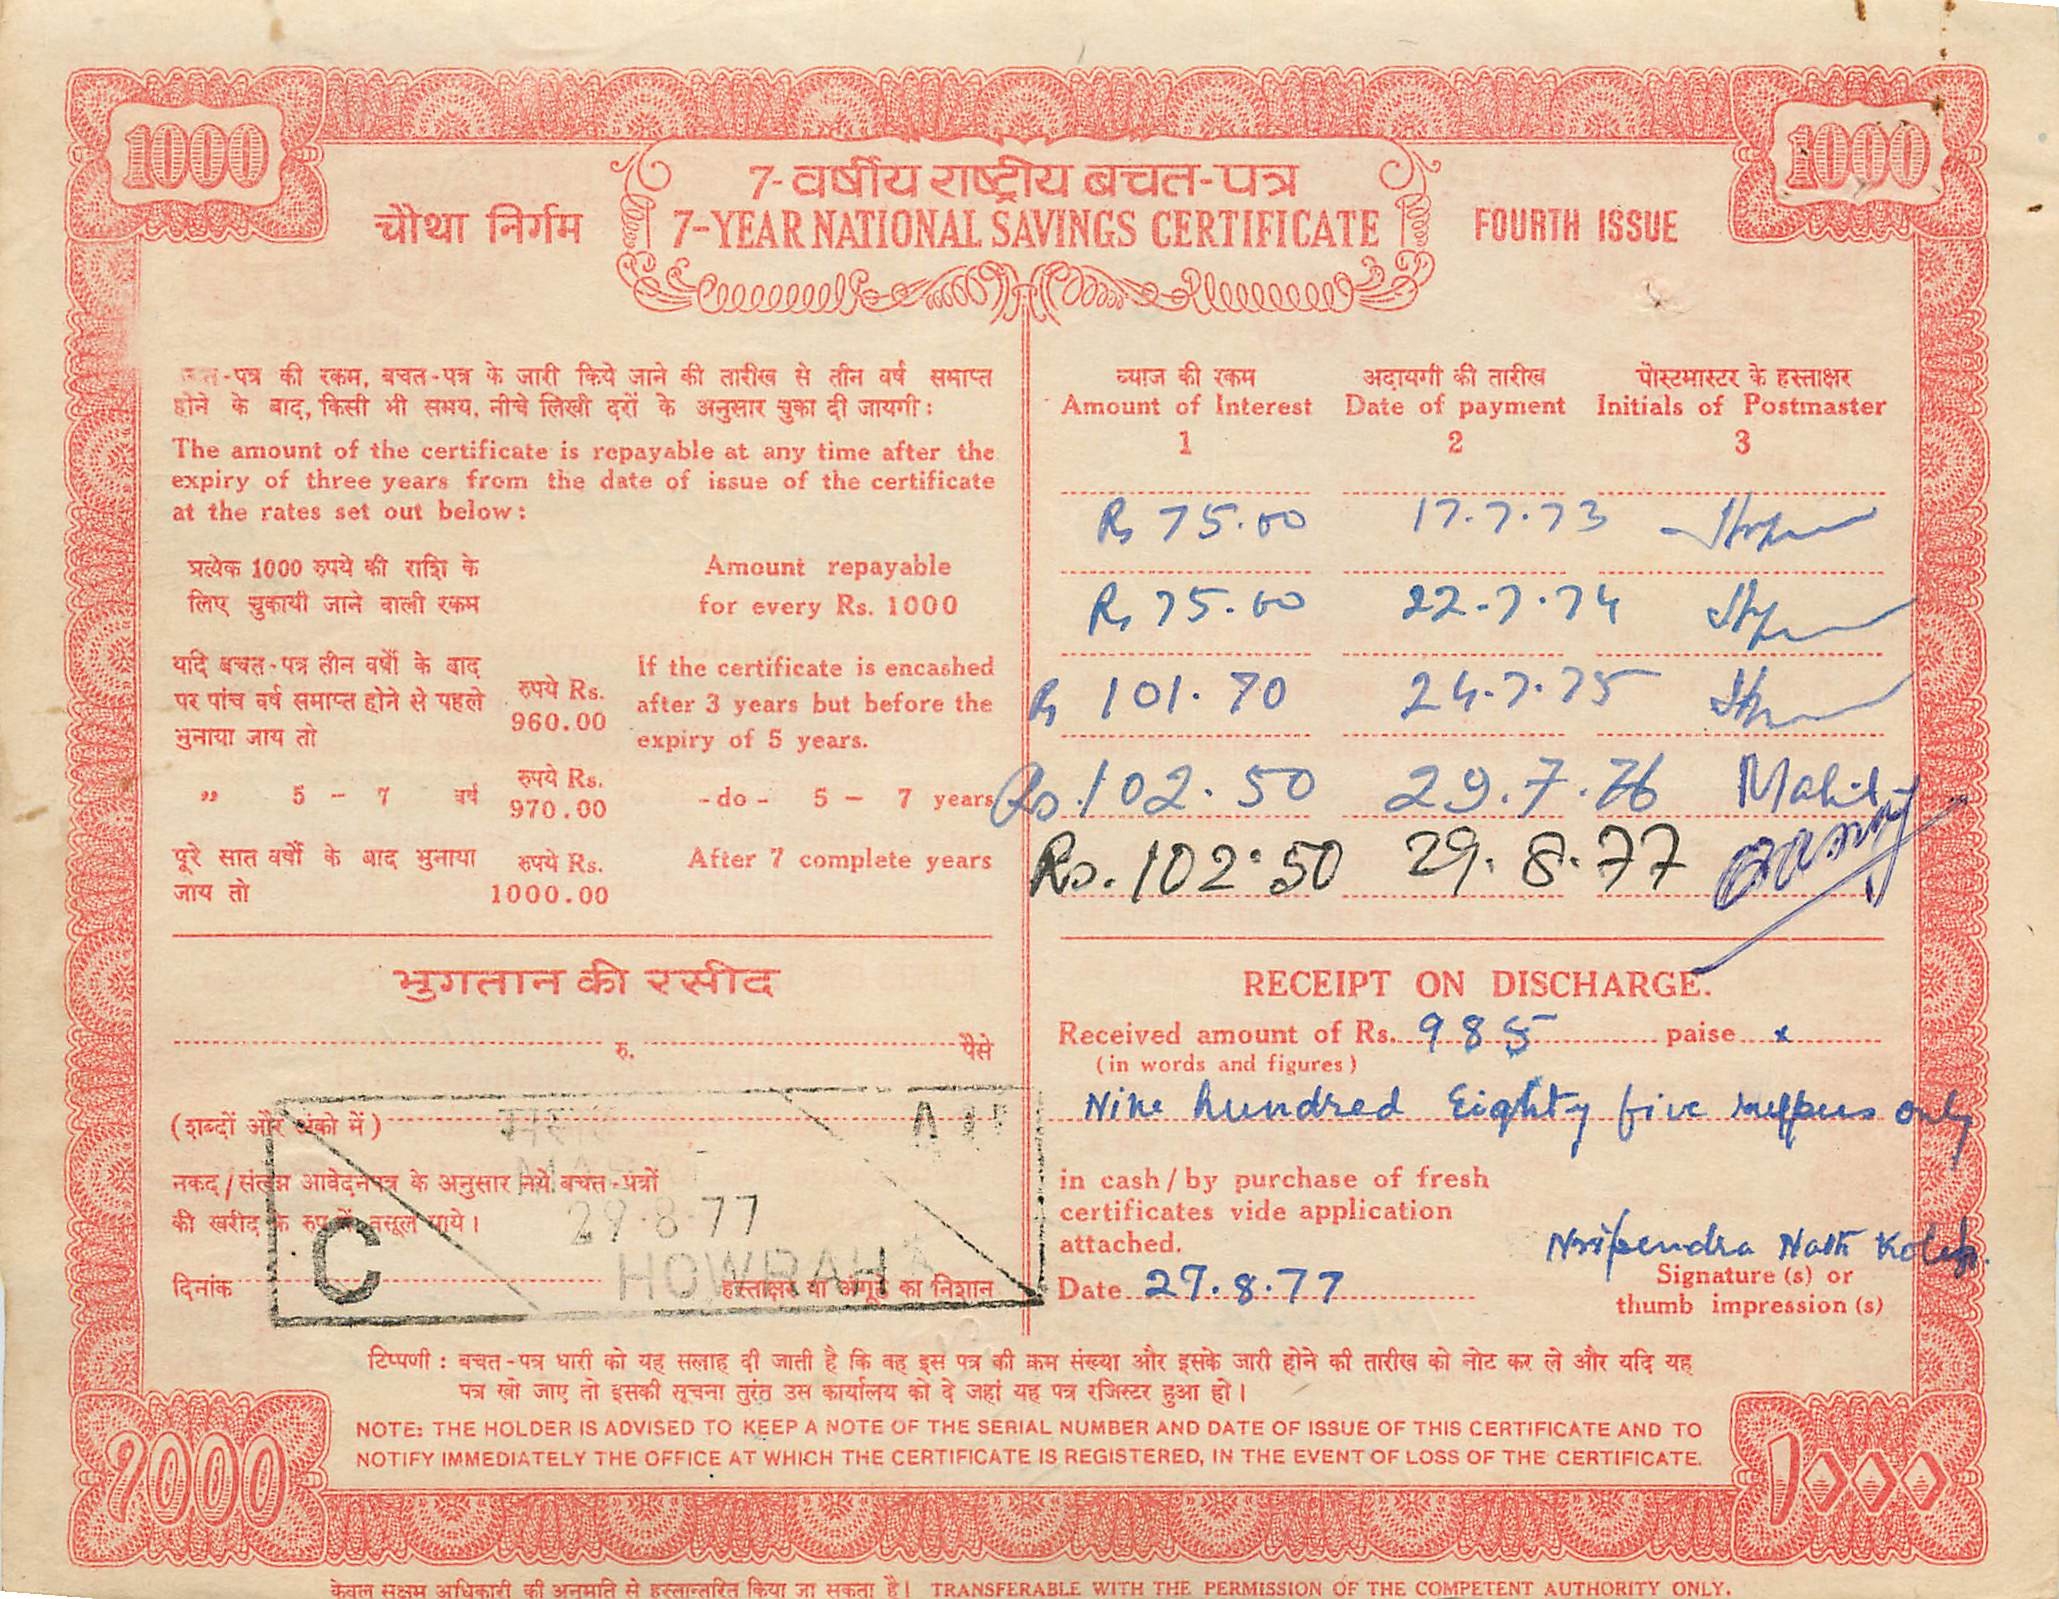 1000
1000
7-वर्षीय राष्ट्रीय बचत-पत्र
चौथा निर्गम
7-YEAR NATIONAL SAVINGS CERTIFICATE
FOURTH ISSUE
-पत्र की रकम, बचत-पत्र के जारी किये जाने की तारीख से तीन वर्ष समाप्त
होने के बाद, किसी भी समय, नीचे लिखी दरों के अनुसार चुका दी जायगी:
The amount of the certificate is repayable at any time after the
expiry of three years from the date of issue of the certificate
at the rates set out below:
प्रत्येक 1000 रुपये की राशि के
लिए चुकायी जाने वाली रकम
Amount repayable
for every Rs. 1000
यदि बचत-पत्र तीन वर्षों के बाद
पर पांच वर्ष समाप्त होने से पहले
भुनाया जाय तो
रुपये Rs.
960.00
If the certificate is encashed
after 3 years but before the
expiry of 5 years.
" 5 - 7 वर्ष
रुपये Rs.
970.00
-do- 5 - 7 years
पूरे सात वर्षों के बाद भुनाया
जाय तो
रुपये Rs.
1000.00
After 7 complete years
ब्याज की रकम
Amount of Interest
1
अदायगी की तारीख
Date of payment
2
पोस्टमास्टर के हस्ताक्षर
Initials of Postmaster
3
Rs 75.00 17.7.73
Rs 75.00 22.7.74
Rs 101.70 24.7.75
Rs. 102.50 29.7.76
Rs. 102.50 29.8.77
भुगतान की रसीद
रु. पैसे
(शब्दों और अंको में)
नकद/संलग्न आवेदनपत्र के अनुसार नये बचत-पत्रों
की खरीद के रुप में वसूल पाये।
दिनांक
हस्ताक्षर या अंगूठे का निशान
C
29.8.77
HOWRAH
RECEIPT ON DISCHARGE.
Received amount of Rs. 985 paise x
(in words and figures)
Nine hundred Eighty five only
in cash/by purchase of fresh
certificates vide application
attached.
Nripendra Nath
Date 29.8.77
Signature (s) or
thumb impression (s)
टिप्पणी : बचत-पत्र धारी को यह सलाह दी जाती है कि वह इस पत्र की क्रम संख्या और इसके जारी होने की तारीख को नोट कर ले और यदि यह
पत्र खो जाए तो इसकी सूचना तुरंत उस कार्यालय को दे जहां यह पत्र रजिस्टर हुआ हो।
NOTE: THE HOLDER IS ADVISED TO KEEP A NOTE OF THE SERIAL NUMBER AND DATE OF ISSUE OF THIS CERTIFICATE AND TO
NOTIFY IMMEDIATELY THE OFFICE AT WHICH THE CERTIFICATE IS REGISTERED, IN THE EVENT OF LOSS OF THE CERTIFICATE.
१०००
1000
केवल सक्षम अधिकारी की अनुमति से हस्तान्तरित किया जा सकता है। TRANSFERABLE WITH THE PERMISSION OF THE COMPETENT AUTHORITY ONLY.